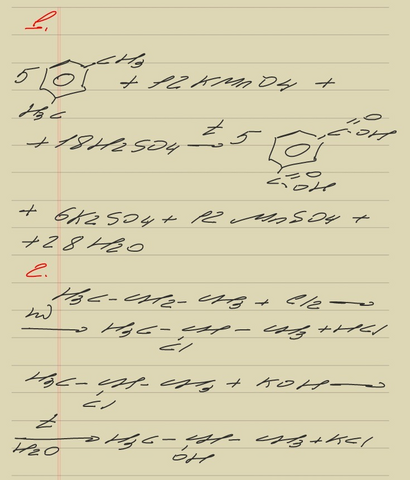 1.
CH3
5 + 12KMnO4 +
H3C
+ 18H2SO4 t→ 5 C=O OH
C=O OH
+ 6K2SO4 + 12MnSO4 +
+ 28H2O
2.
H3C-CH2-CH3 + Cl2 →
hν→ H3C-CH-CH3 + HCl
Cl
H3C-CH-CH3 + KOH →
Cl
t H2O→ H3C-CH-CH3 + KCl
OH